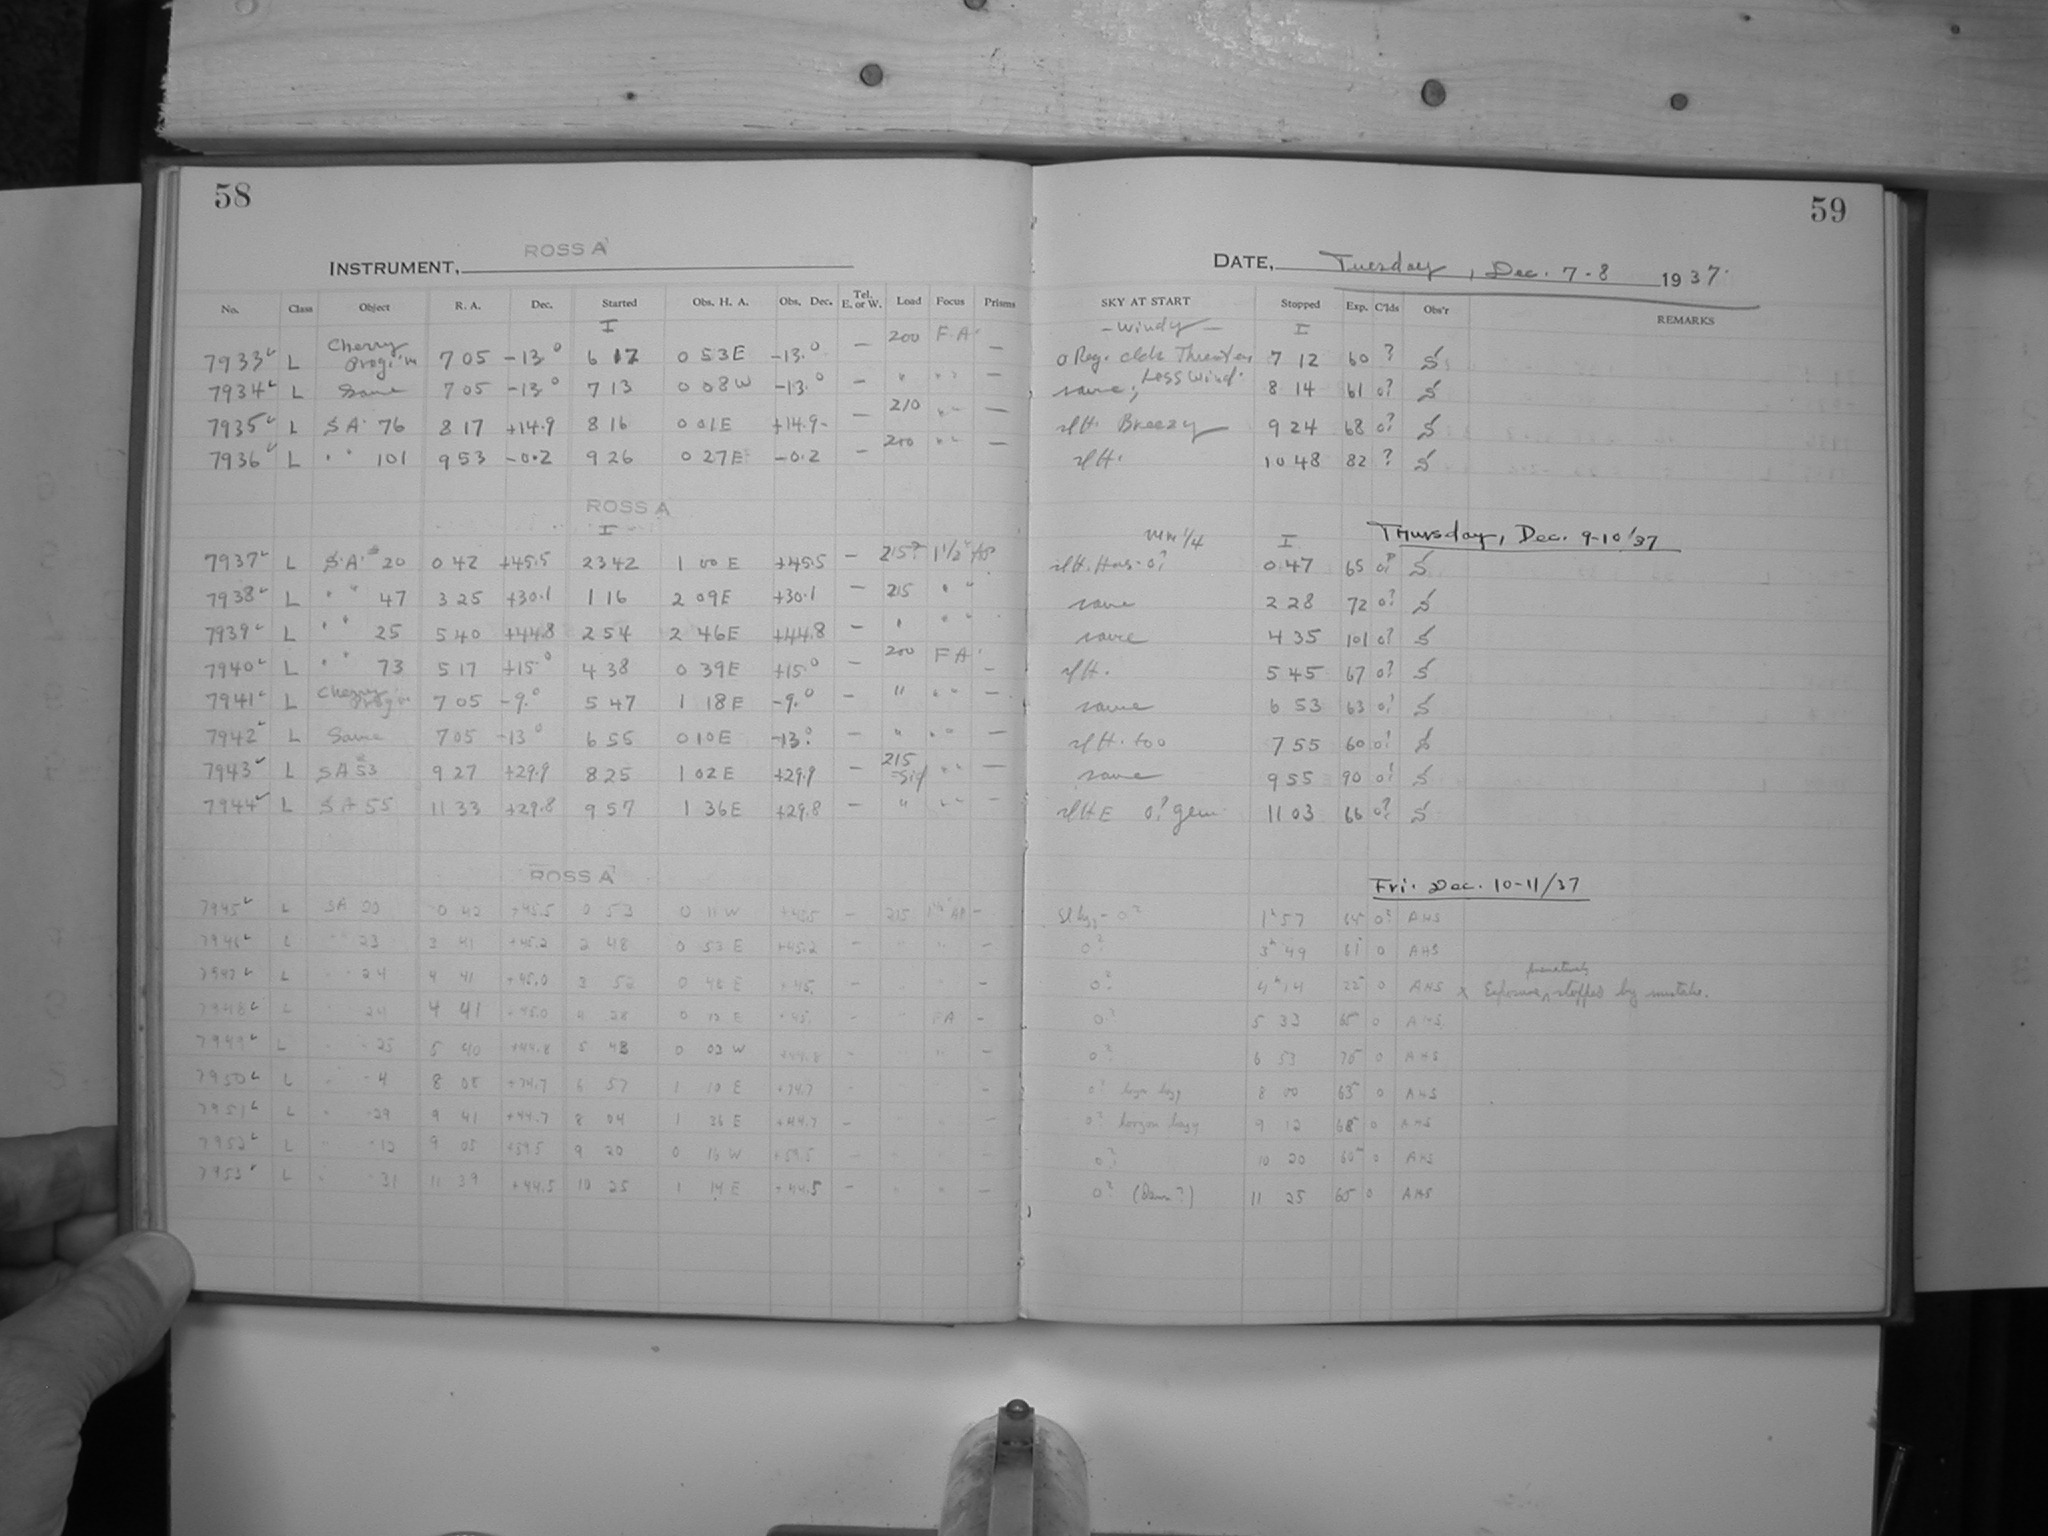 58
59
ROSS A
INSTRUMENT,
DATE, Tuesday, Dec. 7-8 1937.
No. Class Object R. A. Dec. Started Obs. H. A. Obs. Dec. Tel. E. or W. Load Focus Prisms SKY AT START Stopped Exp. C'lds Obs'r REMARKS
I - Windy - I
7933 L Cherry 7 05 -13.° 6 17 0 53 E -13.° - 200 F A - 7 12 60 ?
7934 L Same 7 05 -13.° 7 13 0 08 W -13.° - " " " - same, Less Wind. 8 14 61 0?
7935 L S A 76 8 17 +14.9 8 16 0 01 E +14.9 - 210 " " - Breezy 9 24 68 0?
7936 L " " 101 9 53 -0.2 9 26 0 27 E -0.2 - 200 " " - 10 48 82 ?
ROSS A
I I Thursday, Dec. 9-10/37
7937 L S.A. 20 0 42 +45.5 23 42 1 00 E +45.5 - 215? 1½" Ap 0 47 65 0?
7938 L " " 47 3 25 +30.1 1 16 2 09 E +30.1 - 215 " " same 2 28 72 0?
7939 L " " 25 5 40 +44.8 2 54 2 46 E +44.8 - " " " same 4 35 101 0?
7940 L " " 73 5 17 +15° 4 38 0 39 E +15.° - 200 F A - 5 45 67 0?
7941 L Cherry 7 05 -9.° 5 47 1 18 E -9.° - " " " - same 6 53 63 0?
7942 L Same 7 05 -13° 6 55 0 10 E -13.° - " " " - too 7 55 60 0?
7943 L S A 53 9 27 +29.9 8 25 1 02 E +29.9 - 215 " " - same 9 55 90 0?
7944 L S A 55 11 33 +29.8 9 57 1 36 E +29.8 - " " " - 0? 11 03 66 0?
ROSS A
Fri. Dec. 10-11/37
7945 L SA 20 0 42 +45.5 0 53 0 11 W +45.5 - 215 1½" AP - 0? 1 57 64 0? AHS
7946 L " 23 3 41 +45.2 2 48 0 53 E +45.2 - " " - 0? 3 49 61 0 AHS
7947 L " 24 4 41 +45.0 3 52 0 48 E +45. - " " - 0? 4 14 22 0 AHS x Exposure prematurely stopped by mistake.
7948 L " 24 4 41 +45.0 4 28 0 12 E +45. - " FA - 0? 5 33 65 0 AHS
7949 L " 25 5 40 +44.8 5 43 0 03 W +44.8 - " - 0? 6 53 70 0 AHS
7950 L " 4 8 08 +74.7 6 57 1 10 E +74.7 - 0? 8 00 63 0 AHS
7951 L " 29 9 41 +44.7 8 04 1 36 E +44.7 - 0? horizon hazy 9 12 68 0 AHS
7952 L " 12 9 05 +59.5 9 20 0 16 W +59.5 - 0? 10 20 60 0 AHS
7953 L " 31 11 39 +44.5 10 25 1 14 E +44.5 - " " - 0? (Dawn?) 11 25 60 0 AHS